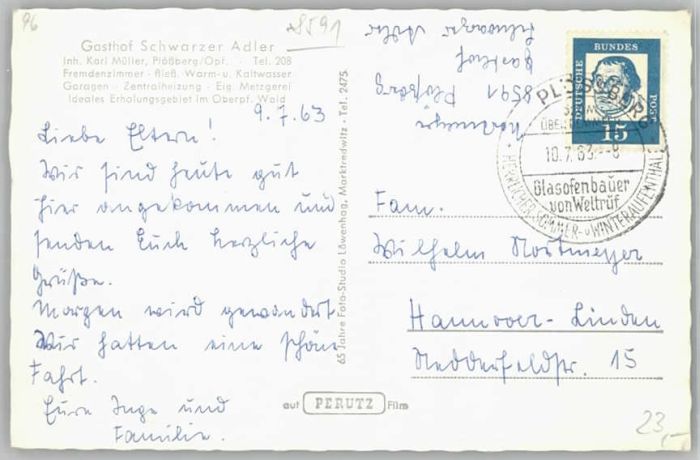 96
8591
Gasthof Schwarzer Adler
Inh. Karl Müller, Plößberg/Opf. · Tel. 208
Fremdenzimmer · fließ. Warm- u. Kaltwasser
Garagen · Zentralheizung · Eig. Metzgerei
Ideales Erholungsgebiet im Oberpf. Wald
9.7.63
Liebe Eltern!
Wir sind heute gut
hier angekommen und
senden Euch herzliche
Grüße.
Morgen wird gewandert
Wir hatten eine schöne
Fahrt.
Eure Inge und
Familie.
65 Jahre Foto-Studio Löwenhag, Marktredwitz · Tel. 2475
auf PERUTZ Film
Nortmeyer
8591 Plößberg
Gasthof
Schwarzer Adler
DEUTSCHE BUNDESPOST
15
PLÖSSBERG
ÜBER
10.7.63.-8
Glasofenbauer
von Weltruf
HERRLICHER SOMMER- u. WINTERAUFENTHALT
Fam.
Wilhelm Nortmeyer
Hannover-Linden
Nedderfeldstr. 15
23,-